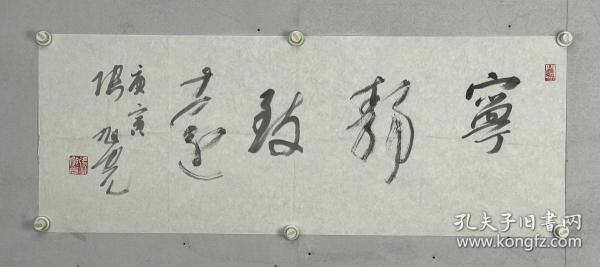 寧靜致遠
庚寅
張旭光
孔夫子旧书网
www.kongfz.com